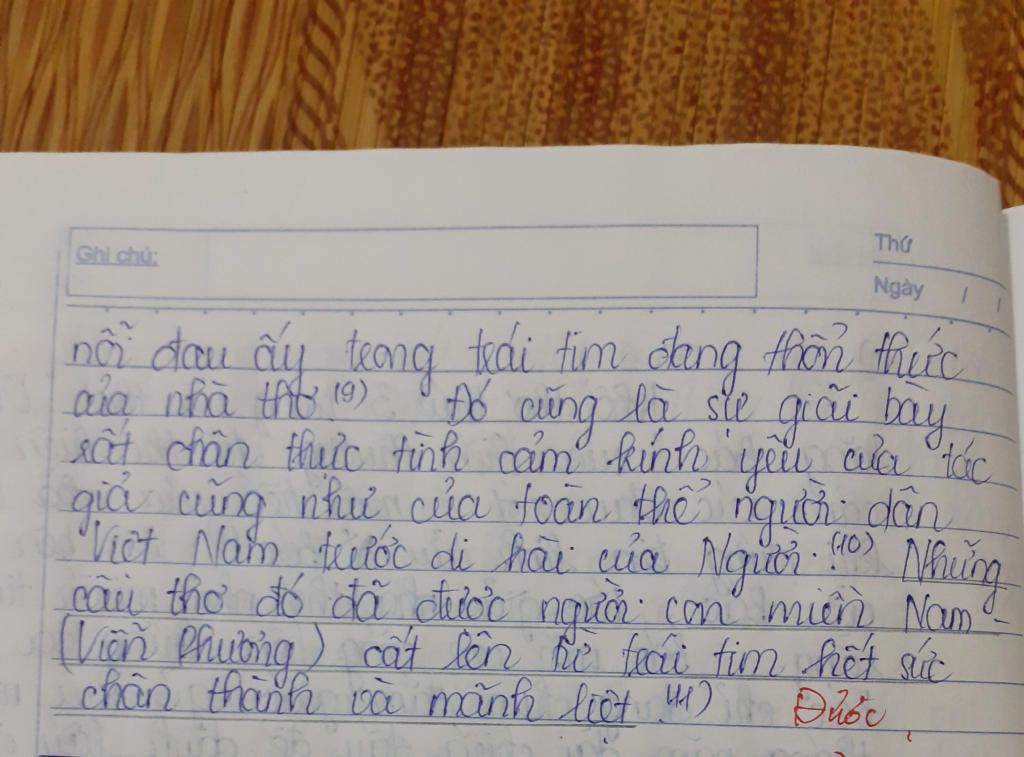 Ghi chú:
Thứ
Ngày / /
nỗi đau ấy trong trái tim đang thổn thức
của nhà thơ (9) Đó cũng là sự giãi bày
rất chân thực tình cảm kính yêu của tác
giả cũng như của toàn thể người dân
Việt Nam trước di hài của Người. (10) Những
câu thơ đó đã được người con miền Nam -
(Viễn Phương) cất lên từ trái tim hết sức
chân thành và mãnh liệt. (11) Được